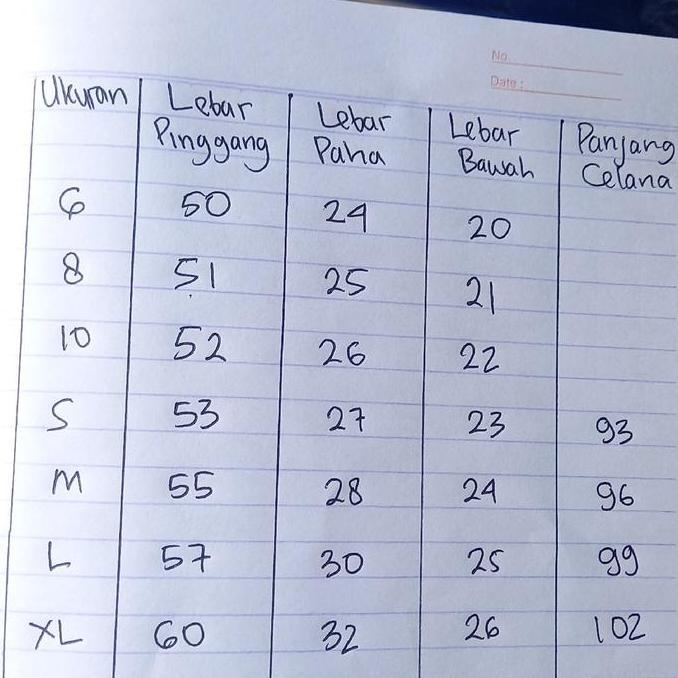 No
Date :
Ukuran Lebar Pinggang Lebar Paha Lebar Bawah Panjang Celana
6 50 24 20
8 51 25 21
10 52 26 22
S 53 27 23 93
M 55 28 24 96
L 57 30 25 99
XL 60 32 26 102